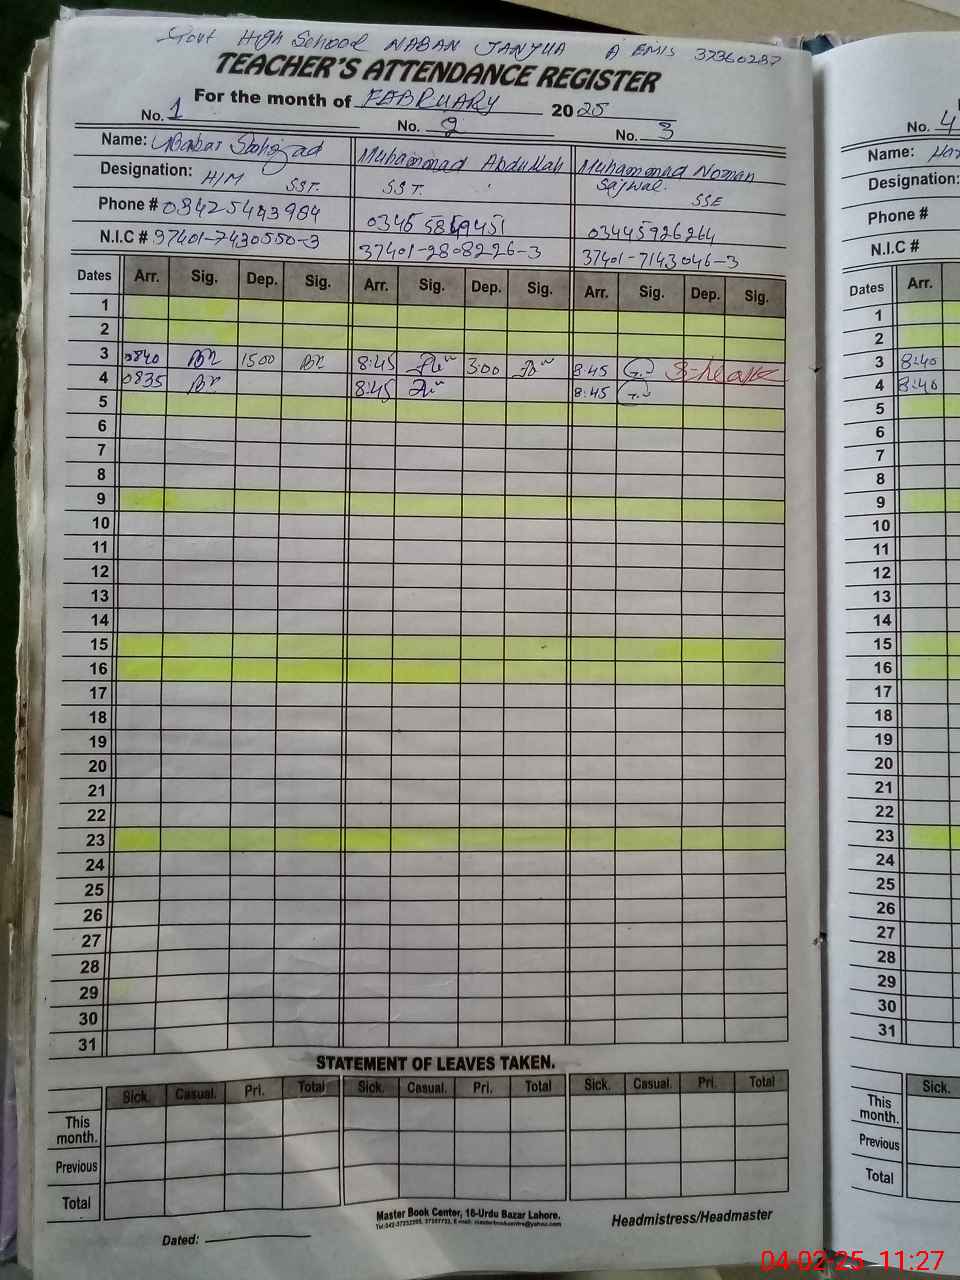 Govt High School NABAN JANJUA A EMIS 37360287
TEACHER'S ATTENDANCE REGISTER
For the month of FABRUARY 2025
No. 1 No. 2 No. 3
Name: Babar Muhammad Abdullah Muhammad Noman
Designation: H/M SST. SST. Sajwal. SSE
Phone # 03425443984 03445926264
N.I.C # 37401-7430550-3 37401-2808226-3 37401-7143046-3
Dates Arr. Sig. Dep. Sig. Arr. Sig. Dep. Sig. Arr. Sig. Dep. Sig.
1
2
3 0840 1500 8:45 3:00 8:45
4 0835 8:45 8:45
5
6
7
8
9
10
11
12
13
14
15
16
17
18
19
20
21
22
23
24
25
26
27
28
29
30
31
STATEMENT OF LEAVES TAKEN.
Sick. Casual. Pri. Total Sick. Casual. Pri. Total Sick. Casual. Pri. Total
This month.
Previous
Total
Master Book Center, 16-Urdu Bazar Lahore.
Dated:
Headmistress/Headmaster
No. 4
Name:
Designation:
Phone #
N.I.C #
Dates Arr.
1
2
3 8:40
4 8:40
5
6
7
8
9
10
11
12
13
14
15
16
17
18
19
20
21
22
23
24
25
26
27
28
29
30
31
Sick.
This month.
Previous
Total
04-02-25 11:27